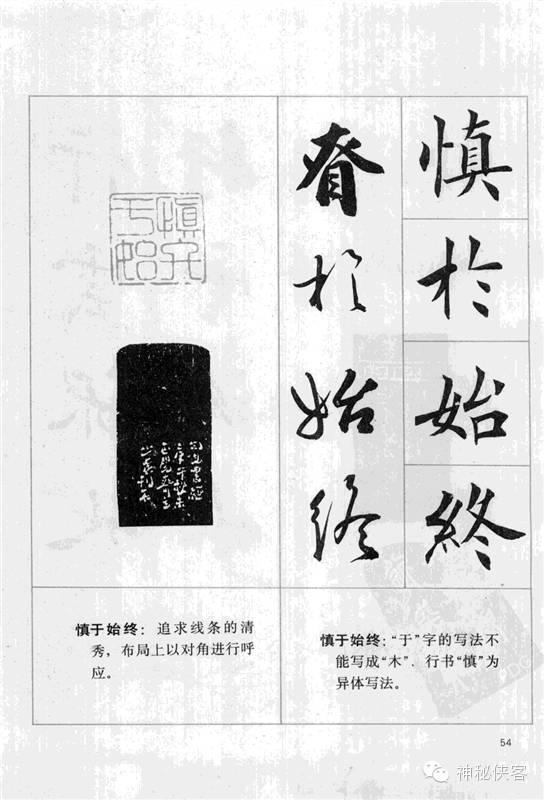 慎於始終
昚於始终
慎于始终
慎于始终：追求线条的清
秀，布局上以对角进行呼
应。
慎于始终：“于”字的写法不
能写成“木”．行书“慎”为
异体写法。
54
神秘侠客